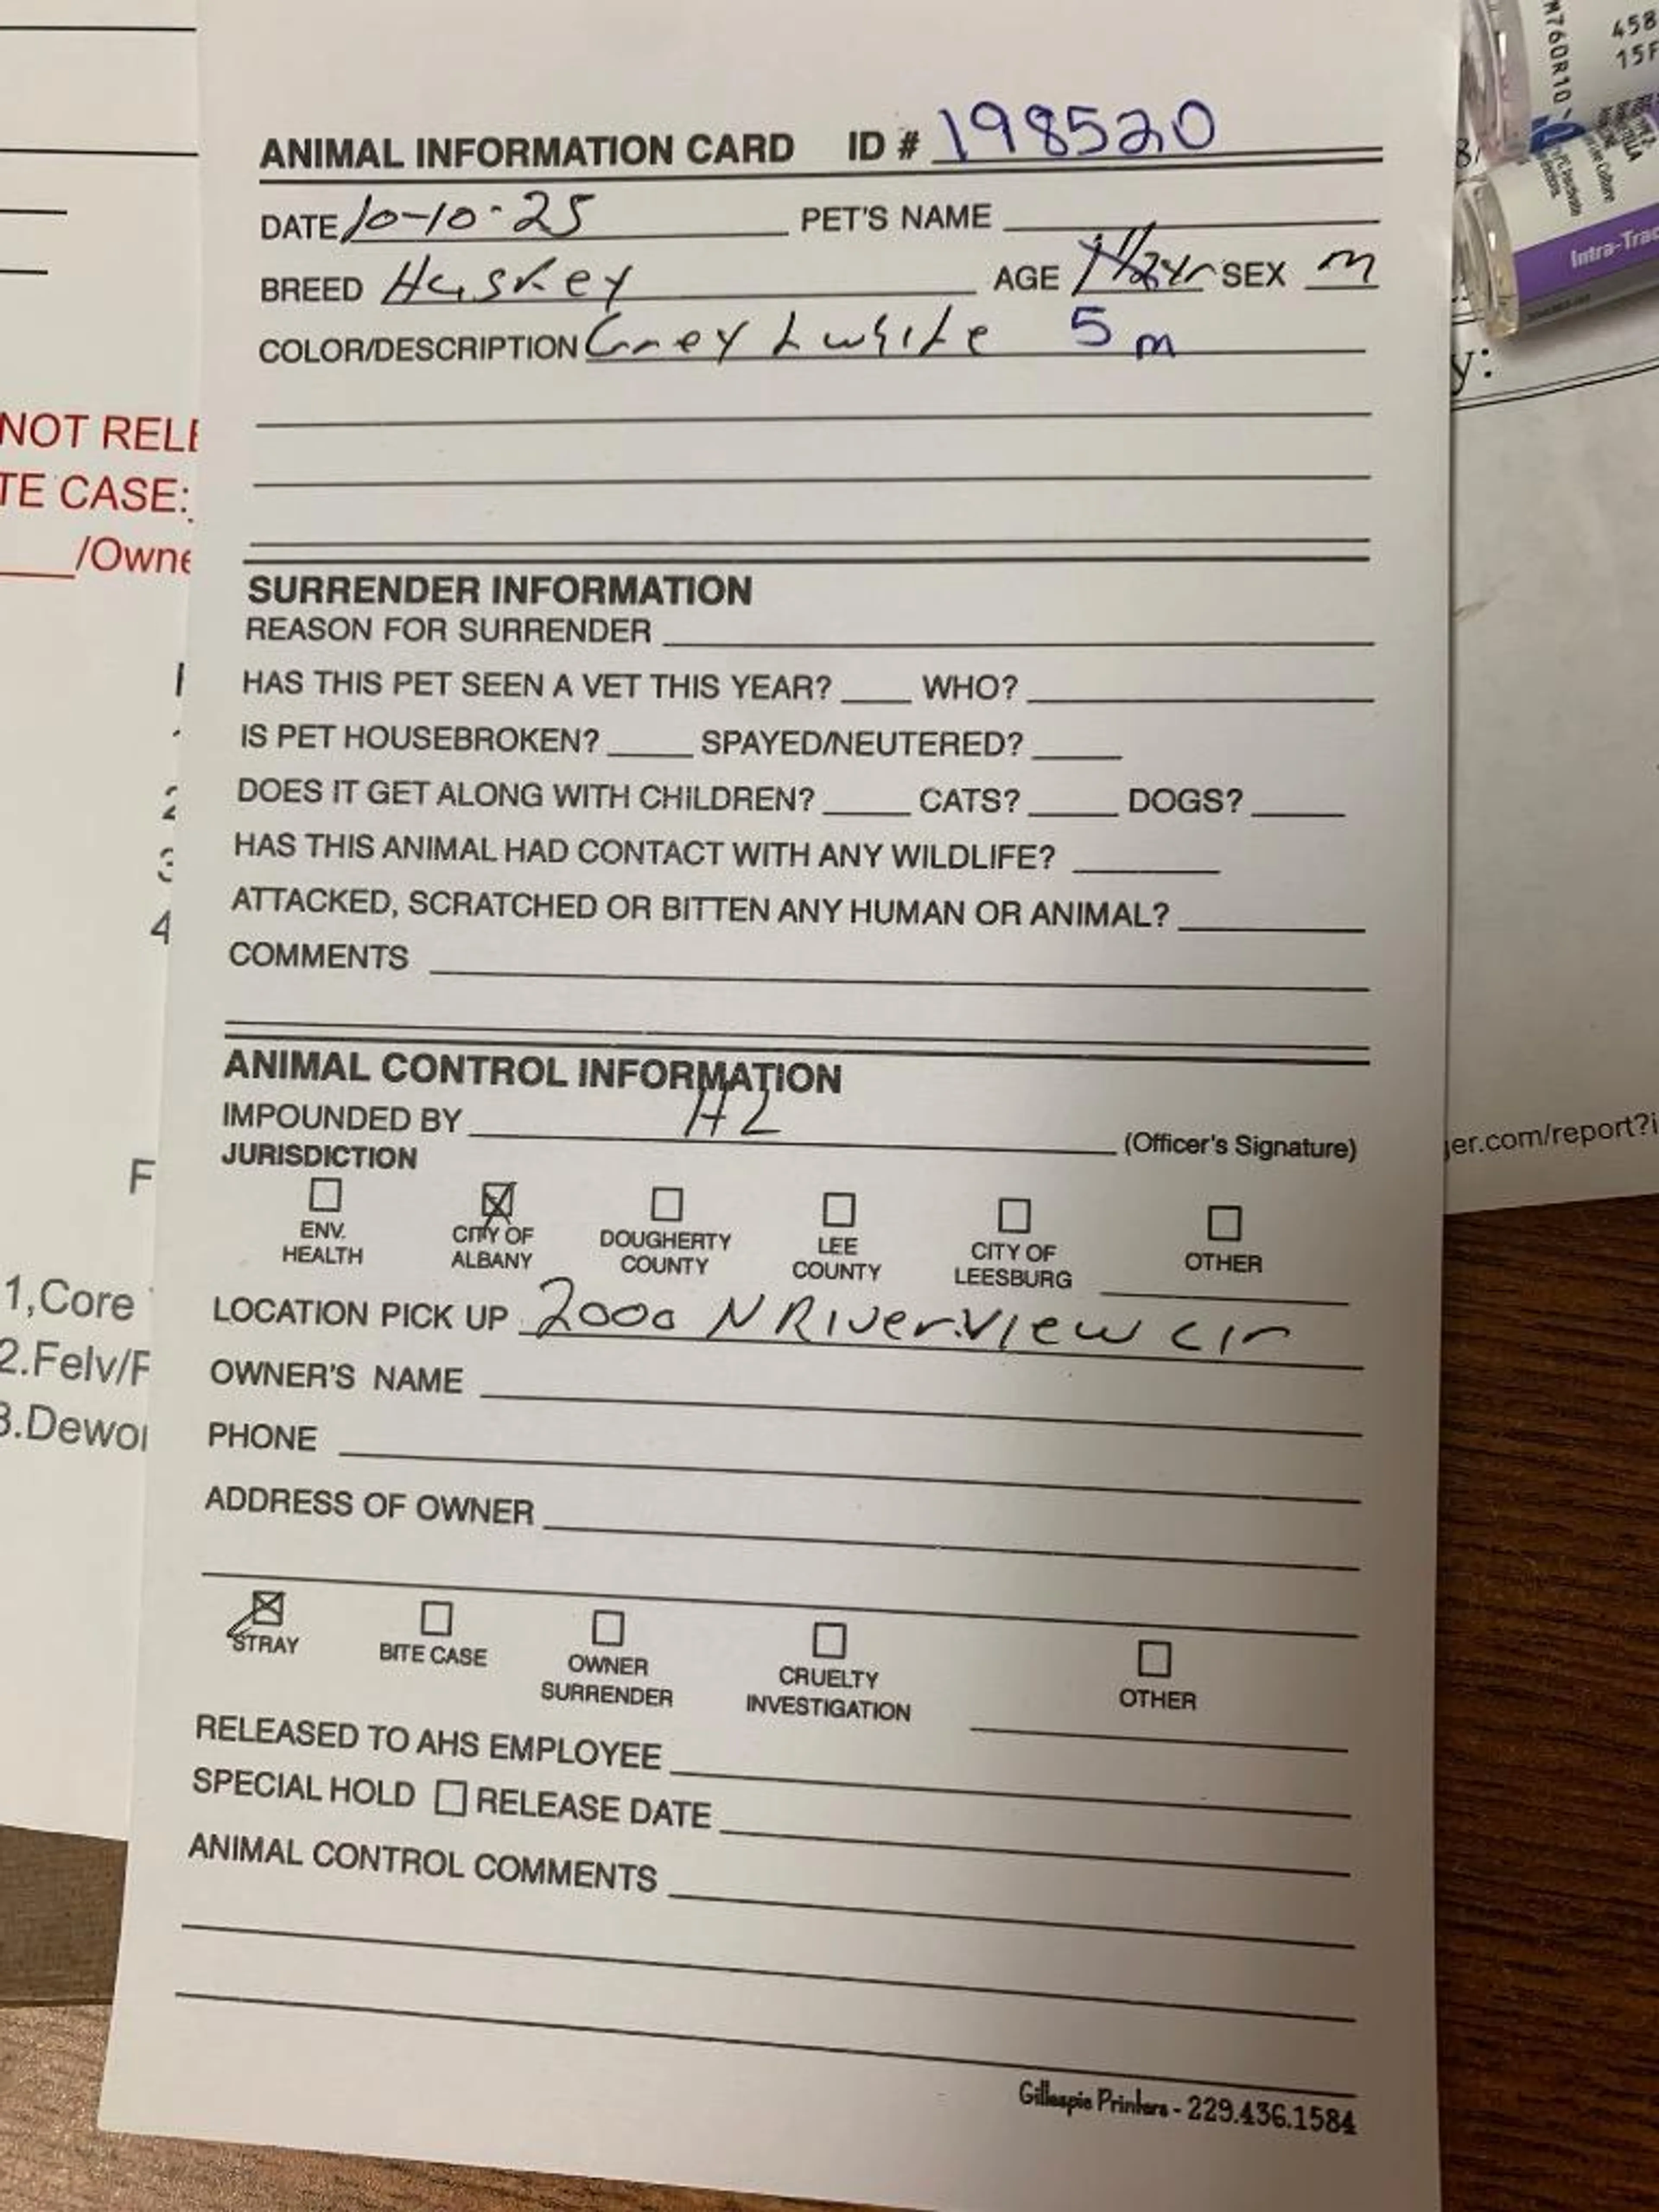 ANIMAL INFORMATION CARD ID # 198520
DATE 10-10-25 PET'S NAME
BREED Huskey AGE 1 1/2 yr SEX m
COLOR/DESCRIPTION Grey & white 5 m
SURRENDER INFORMATION
REASON FOR SURRENDER
HAS THIS PET SEEN A VET THIS YEAR? WHO?
IS PET HOUSEBROKEN? SPAYED/NEUTERED?
DOES IT GET ALONG WITH CHILDREN? CATS? DOGS?
HAS THIS ANIMAL HAD CONTACT WITH ANY WILDLIFE?
ATTACKED, SCRATCHED OR BITTEN ANY HUMAN OR ANIMAL?
COMMENTS
ANIMAL CONTROL INFORMATION
IMPOUNDED BY HL (Officer's Signature)
JURISDICTION
ENV. HEALTH
CITY OF ALBANY
DOUGHERTY COUNTY
LEE COUNTY
CITY OF LEESBURG
OTHER
LOCATION PICK UP 2000 N RiverView cir
OWNER'S NAME
PHONE
ADDRESS OF OWNER
STRAY
BITE CASE
OWNER SURRENDER
CRUELTY INVESTIGATION
OTHER
RELEASED TO AHS EMPLOYEE
SPECIAL HOLD RELEASE DATE
ANIMAL CONTROL COMMENTS
Gillespie Printers - 229.436.1584
NOT RELE
TE CASE:
/Owne
1
2
3
4
F
1,Core
2.Felv/F
3.Dewor
M760R10
458
15F
Intra-Trac
y:
ger.com/report?i